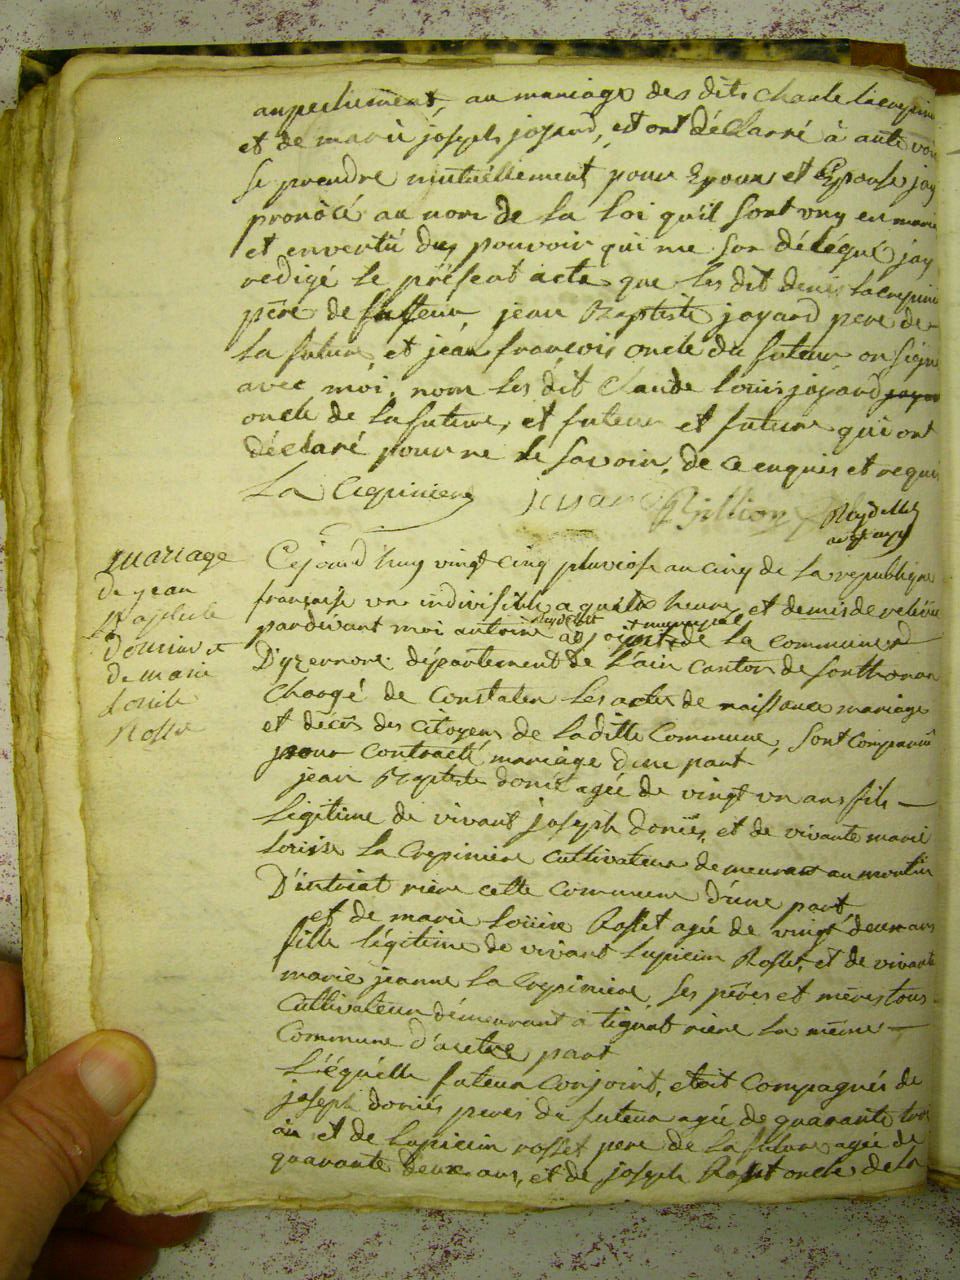 anpechement, au mariage des dits Charle lacrepini
et de marie joseph joyard, et ont déClarré à aute voix
se prendre mutuellement pour Epoux et Epouse jay
pronôcé au nom de la Loi quil sont vny en maria
et envertû des pouvoir qui me son délégué jay
redigé le présent acte que les dit denis lacrepini
père de futeur jean Baptiste joyard pere de
la future et jean francois oncle du futeur on signé
avec moi, nom les dit Claude Louis joyard
oncle de la future, et futeur et future qui ont
déclaré pour ne le savoir, de ce enquis et requi
La Crepiniere joyard Billion Reydellet
mariage
de jean
Baptiste
doniez et
de marie
louise
Rosset
Cejourd huy vingt cinq pluviose an cinq de la republique
française une indivisible a quatre heure et demis de relevée
Reydellet municipal
pardevant moi antoine adjoint de la commune
D'yzernore département de L'ain canton de Sonthonax
Chargé de constater les actes de naissance mariage
et décès des citoyens de laditte Commune, sont comparus
pour contracté mariage d'une part
jean Baptiste doniez agée de vingt un ans fils
Légitime de vivant joseph doniez, et de vivante marie
louise la Crepiniere cultivateur demeurant au moulin
D'intriat rière cette commune d'une part
et de marie Louise Rosset agée de vingt deux ans
fille légitime de vivant Lupicin Rosset, et de vivante
marie jeanne la Crepiniere, ses pères et mères tous
cultivateur démeurant a tignat rière la même
Commune d'autre part
Léquelle futeur conjoint, etoit compagnés de
joseph doniés peres du futeur agée de quarante trois
an et de Lupicin rosset pere de la future agée de
quarante deux ans, et de joseph Rosset oncle de la